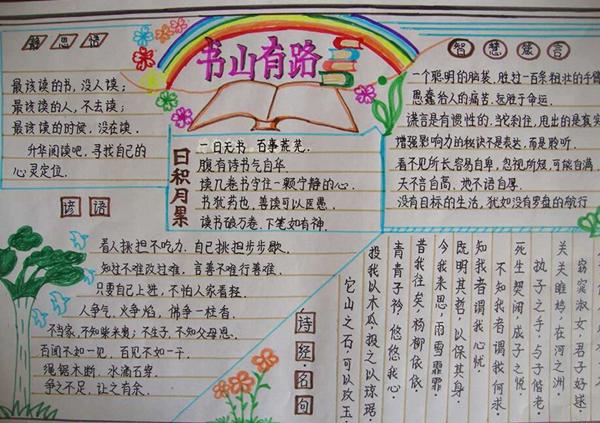 书山有路
思语
最该读的书，没人读；
最该读的人，不去读；
最该读的时候，没在读．
升华阅读吧，寻找自己的
心灵定位．
日积月累
一日无书　百事荒芜．
腹有诗书气自华．
读几卷书守住一颗宁静的心．
书犹药也，善读可以医愚．
读书破万卷，下笔如有神．
智慧箴言
一个聪明的脑袋，胜过一百条粗壮的手臂
愚蠢给人的痛苦，远胜于命运．
谎言是有惯性的，当刹住，甩出的是真实
增强影响力的秘诀不是表达，而是聆听．
看不见所长容易自卑，忽视所短，可能自满．
天不言自高，地不语自厚．
没有目标的生活，犹如没有罗盘的航行
谚语
看人挑担不吃力，自己挑担步步歇．
知过不难改过难，言善不难行善难．
只要自己上进，不怕人家看轻．
人争气，火争焰，佛争一柱香．
不当家，不知柴米贵；不生子，不知父母恩．
百闻不如一见，百见不如一干．
绳锯木断，水滴石穿．
争之不足，让之有余．
诗经·名句
窈窕淑女，君子好逑．
关关雎鸠，在河之洲．
执子之手，与子偕老．
死生契阔，成子之悦．
不知我者谓我何求．
知我者谓我心忧
既明其哲，以保其身．
今我来思，雨雪霏霏
昔我往矣，杨柳依依
青青子衿，悠悠我心．
投我以木瓜，报之以琼琚．
它山之石，可以攻玉．